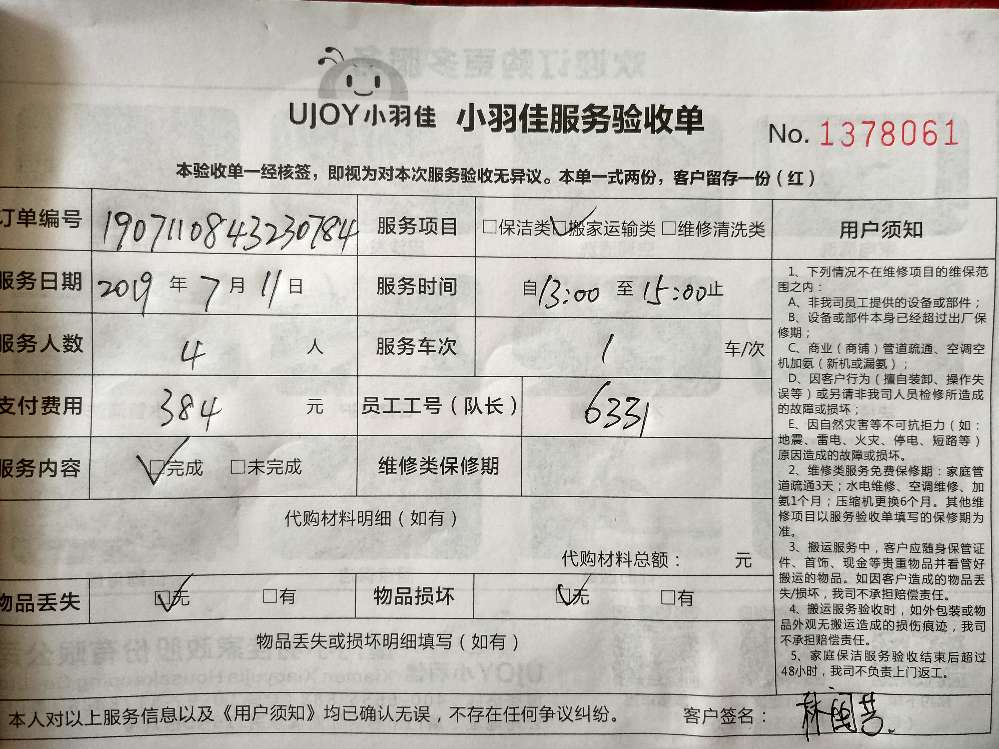 UJOY小羽佳 小羽佳服务验收单 No. 1378061
本验收单一经核签，即视为对本次服务验收无异议。本单一式两份，客户留存一份（红）
订单编号 1907110843230784 服务项目 □保洁类 ☑搬家运输类 □维修清洗类
服务日期 2019 年 7 月 11 日 服务时间 自 13:00 至 15:00 止
服务人数 4 人 服务车次 1 车/次
支付费用 384 元 员工工号（队长） 6331
服务内容 ☑完成 □未完成 维修类保修期
代购材料明细（如有）
代购材料总额： 元
物品丢失 ☑无 □有 物品损坏 ☑无 □有
物品丢失或损坏明细填写（如有）
用户须知
1、下列情况不在维修项目的维保范
围之内：
A、非我司员工提供的设备或部件；
B、设备或部件本身已经超过出厂保
修期；
C、商业（商铺）管道疏通、空调空
机加氨（新机或漏氨）；
D、因客户行为（擅自装卸、操作失
误等）或另请非我司人员检修所造成
的故障或损坏；
E、因自然灾害等不可抗拒力（如：
地震、雷电、火灾、停电、短路等）
原因造成的故障或损坏。
2、维修类服务免费保修期：家庭管
道疏通3天；水电维修、空调维修、加
氨1个月；压缩机更换6个月。其他维
修项目以服务验收单填写的保修期为
准。
3、搬运服务中，客户应随身保管证
件、首饰、现金等贵重物品并看管好
搬运的物品。如因客户造成的物品丢
失/损坏，我司不承担赔偿责任。
4、搬运服务验收时，如外包装或物
品外观无搬运造成的损伤痕迹，我司
不承担赔偿责任。
5、家庭保洁服务验收结束后超过
48小时，我司不负责上门返工。
本人对以上服务信息以及《用户须知》均已确认无误，不存在任何争议纠纷。 客户签名：